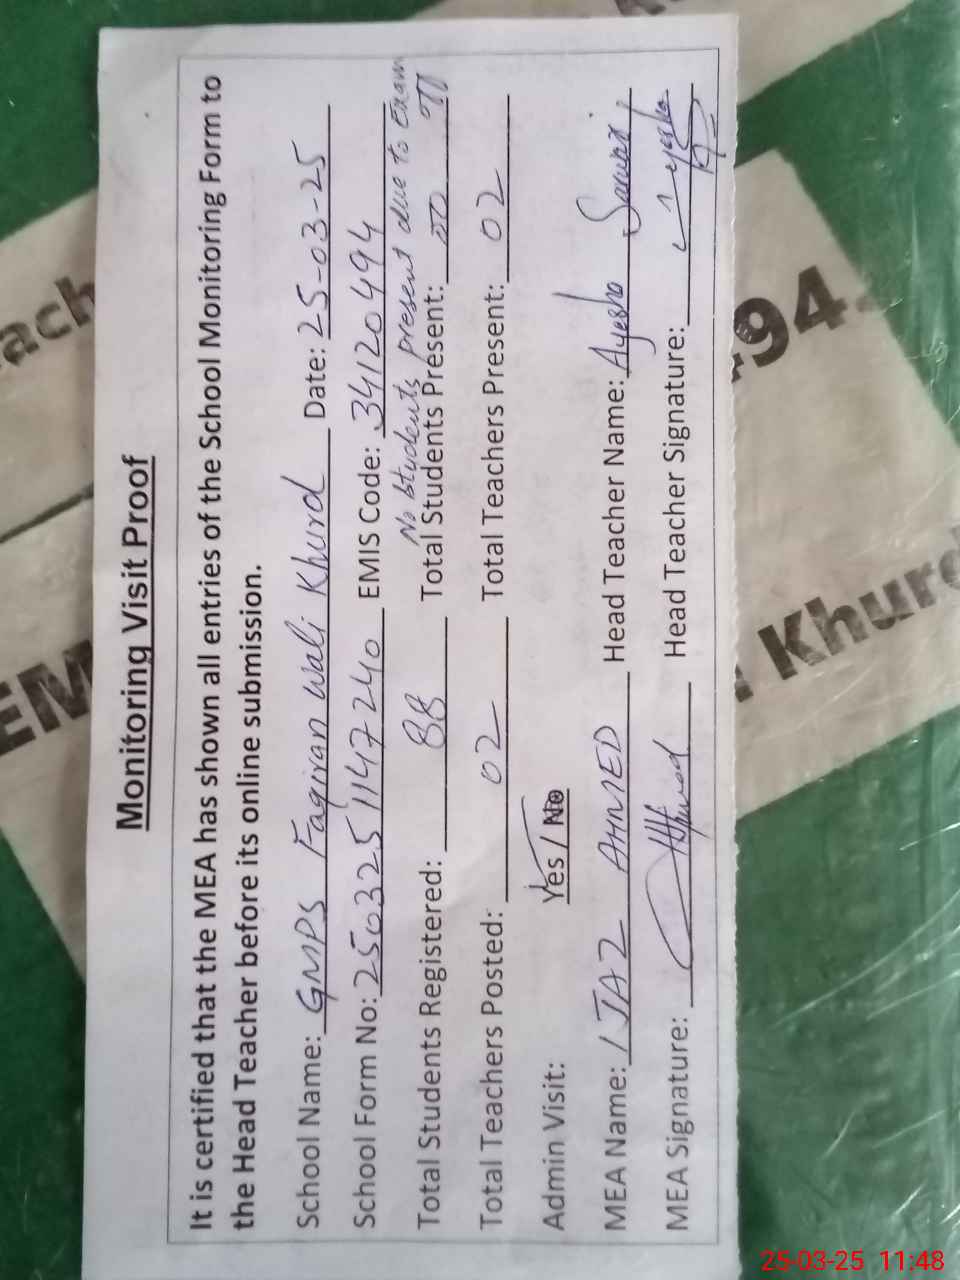 Monitoring Visit Proof
It is certified that the MEA has shown all entries of the School Monitoring Form to
the Head Teacher before its online submission.
School Name: GMPS Faqiran Wali Khurd Date: 25-03-25
School Form No: 2503251147240 EMIS Code: 34120494
No students present due to Exam
Total Students Registered: 88 Total Students Present: 00
Total Teachers Posted: 02 Total Teachers Present: 02
Admin Visit: Yes / No
MEA Name: IJAZ AHMED Head Teacher Name: Ayesha Sarwar
MEA Signature: Ahmed Head Teacher Signature: Ayesha
ach
EM
94
Khurd
25-03-25 11:48